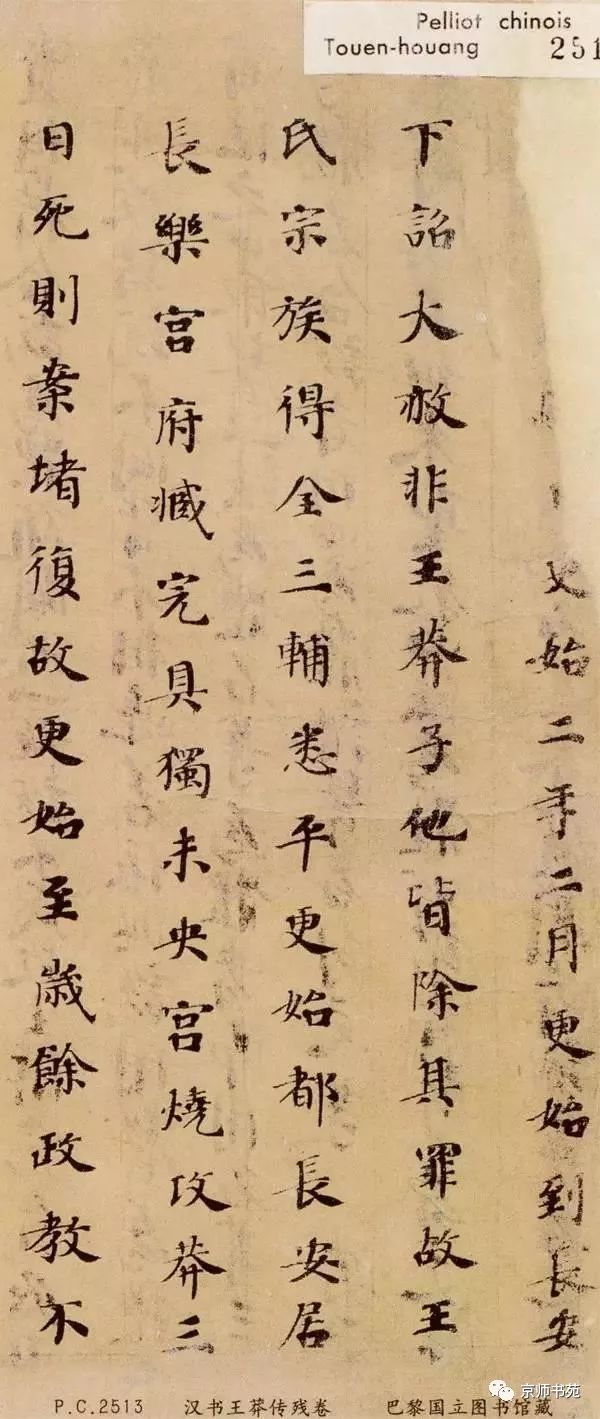 Pelliot chinois
Touen-houang 251
始二年二月更始到長安
下詔大赦非王莽子他皆除其罪故王
氏宗族得全三輔悉平更始都長安居
長樂宮府臧完具獨未央宮燒攻莽三
日死則案堵復故更始至歲餘政教不
P.C.2513 汉书王莽传残卷 巴黎国立图书馆藏
京师书苑